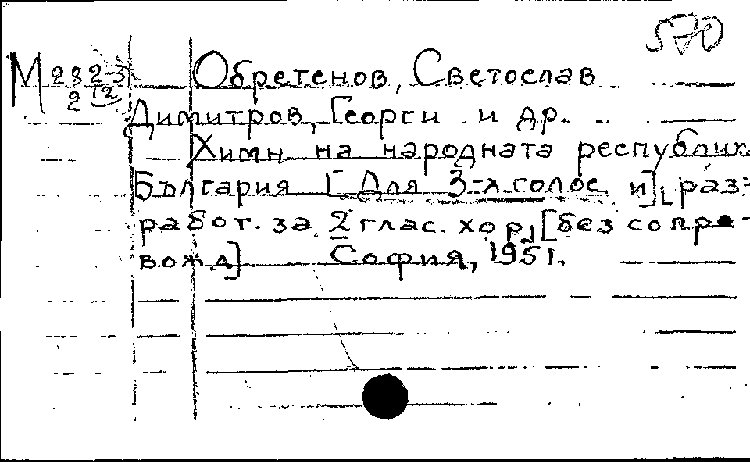 570
М 282-3
2 12
Обретенов, Светослав
Димитров, Георги и др.
Химн на народната републик
България [Для 3-х голос. и], раз-
работ. за 2 глас. хор, [без сопро-
вожд]    София, 1951.